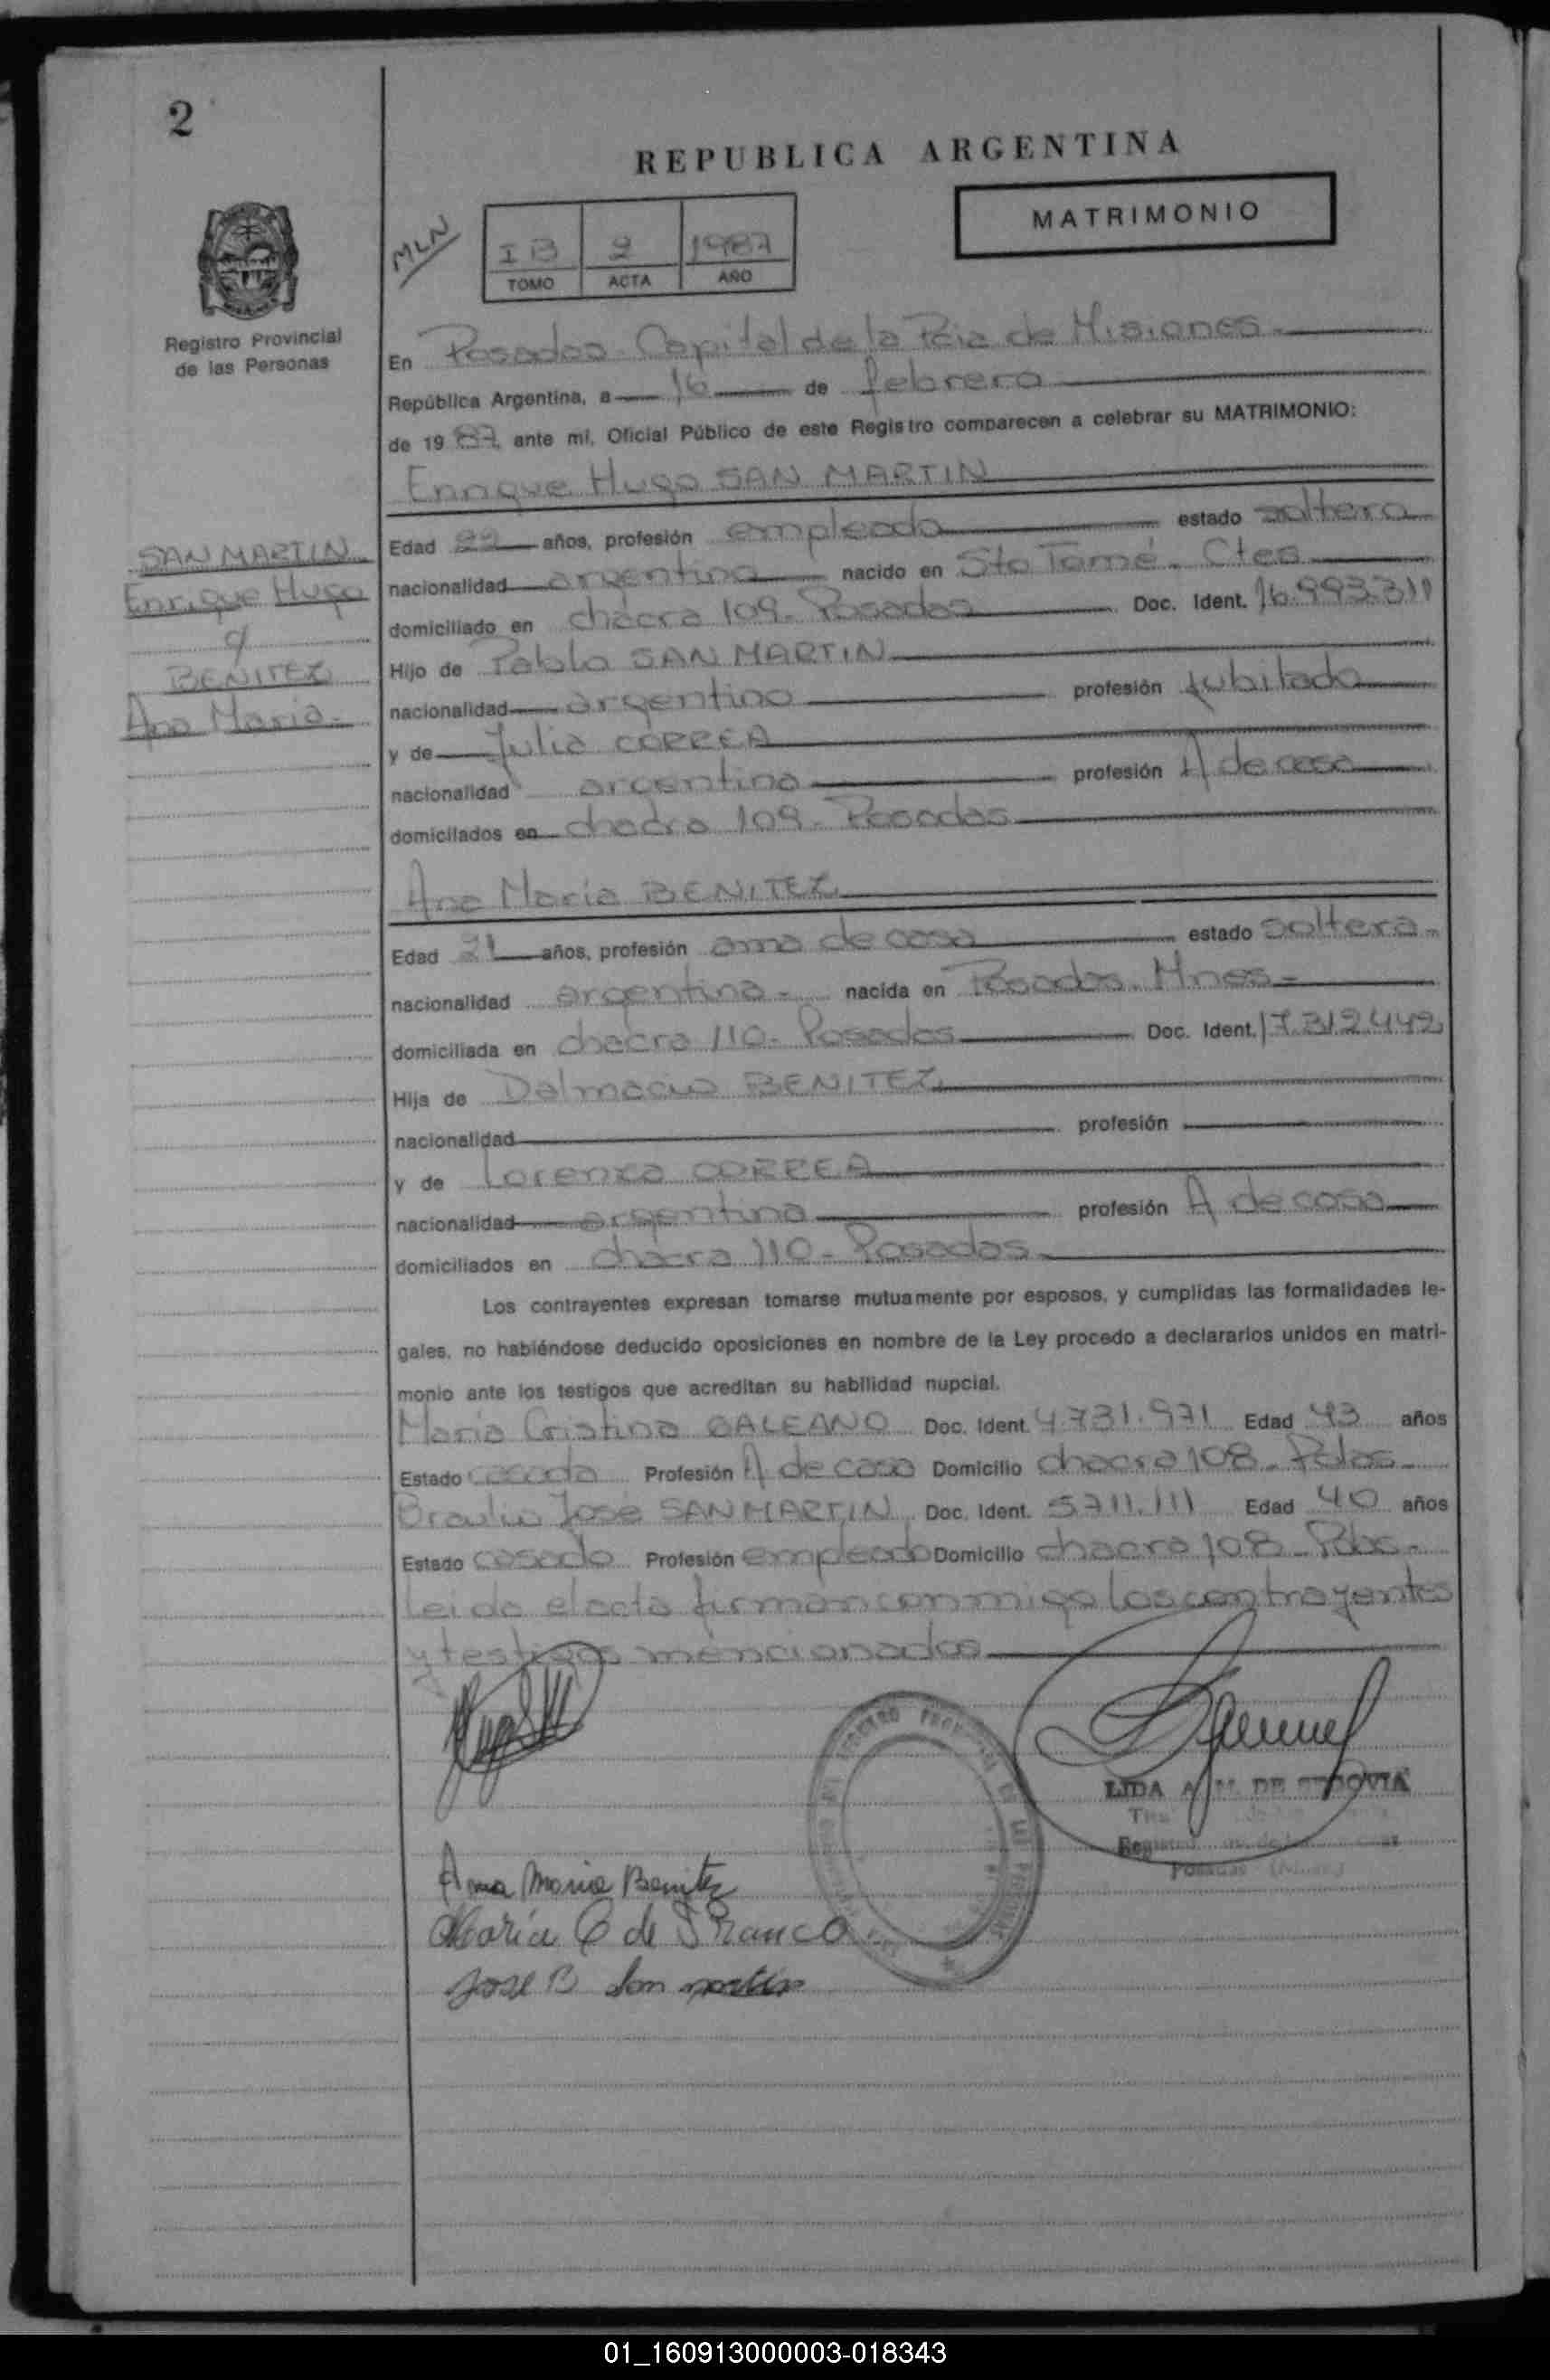 2
REPUBLICA ARGENTINA
MATRIMONIO
MLN
I B 2 1987
TOMO ACTA AÑO
Registro Provincial
de las Personas
En Posadas Capital de la Pcia de Misiones
República Argentina, a 16 de febrero
de 1987 ante mí, Oficial Público de este Registro comparecen a celebrar su MATRIMONIO:
Enrique Hugo SAN MARTIN
SAN MARTIN
Enrique Hugo
c/
BENITEZ
Ana Maria.-
Edad 22 años, profesión empleado estado soltero
nacionalidad argentino nacido en Sto Tomé. Ctes
domiciliado en chacra 109- Posadas Doc. Ident. 16.993.311
Hijo de Pablo SAN MARTIN
nacionalidad argentino profesión jubilado
y de Julia CORREA
nacionalidad argentina profesión A de casa
domicilados en chacra 109- Posadas
Ana Maria BENITEZ
Edad 21 años, profesión ama de casa estado soltera-
nacionalidad argentina- nacida en Posadas. Mnes-
domiciliada en chacra 110- Posadas Doc. Ident. 17.312.449
Hija de Dalmacio BENITEZ
nacionalidad profesión
y de Lorenza CORREA
nacionalidad argentina profesión A de casa
domiciliados en chacra 110- Posadas
Los contrayentes expresan tomarse mutuamente por esposos, y cumplidas las formalidades le-
gales, no habiéndose deducido oposiciones en nombre de la Ley procedo a declararlos unidos en matri-
monio ante los testigos que acreditan su habilidad nupcial.
Maria Cristina GALEANO Doc. Ident. 4.731.971 Edad 43 años
Estado casada Profesión A de casa Domicilio chacra 108- Pdas-
Braulio José SAN MARTIN Doc. Ident. 5711.111 Edad 40 años
Estado casado Profesión empleado Domicilio chacra 108- Pdas-
Leida el acta firman conmigo los contrayentes
y testigos mencionados
LIDA A. M. DE SEGOVIA
Posadas
Ana Maria Benitez
Maria G de Franco
Jose B San martin
01_160913000003-018343